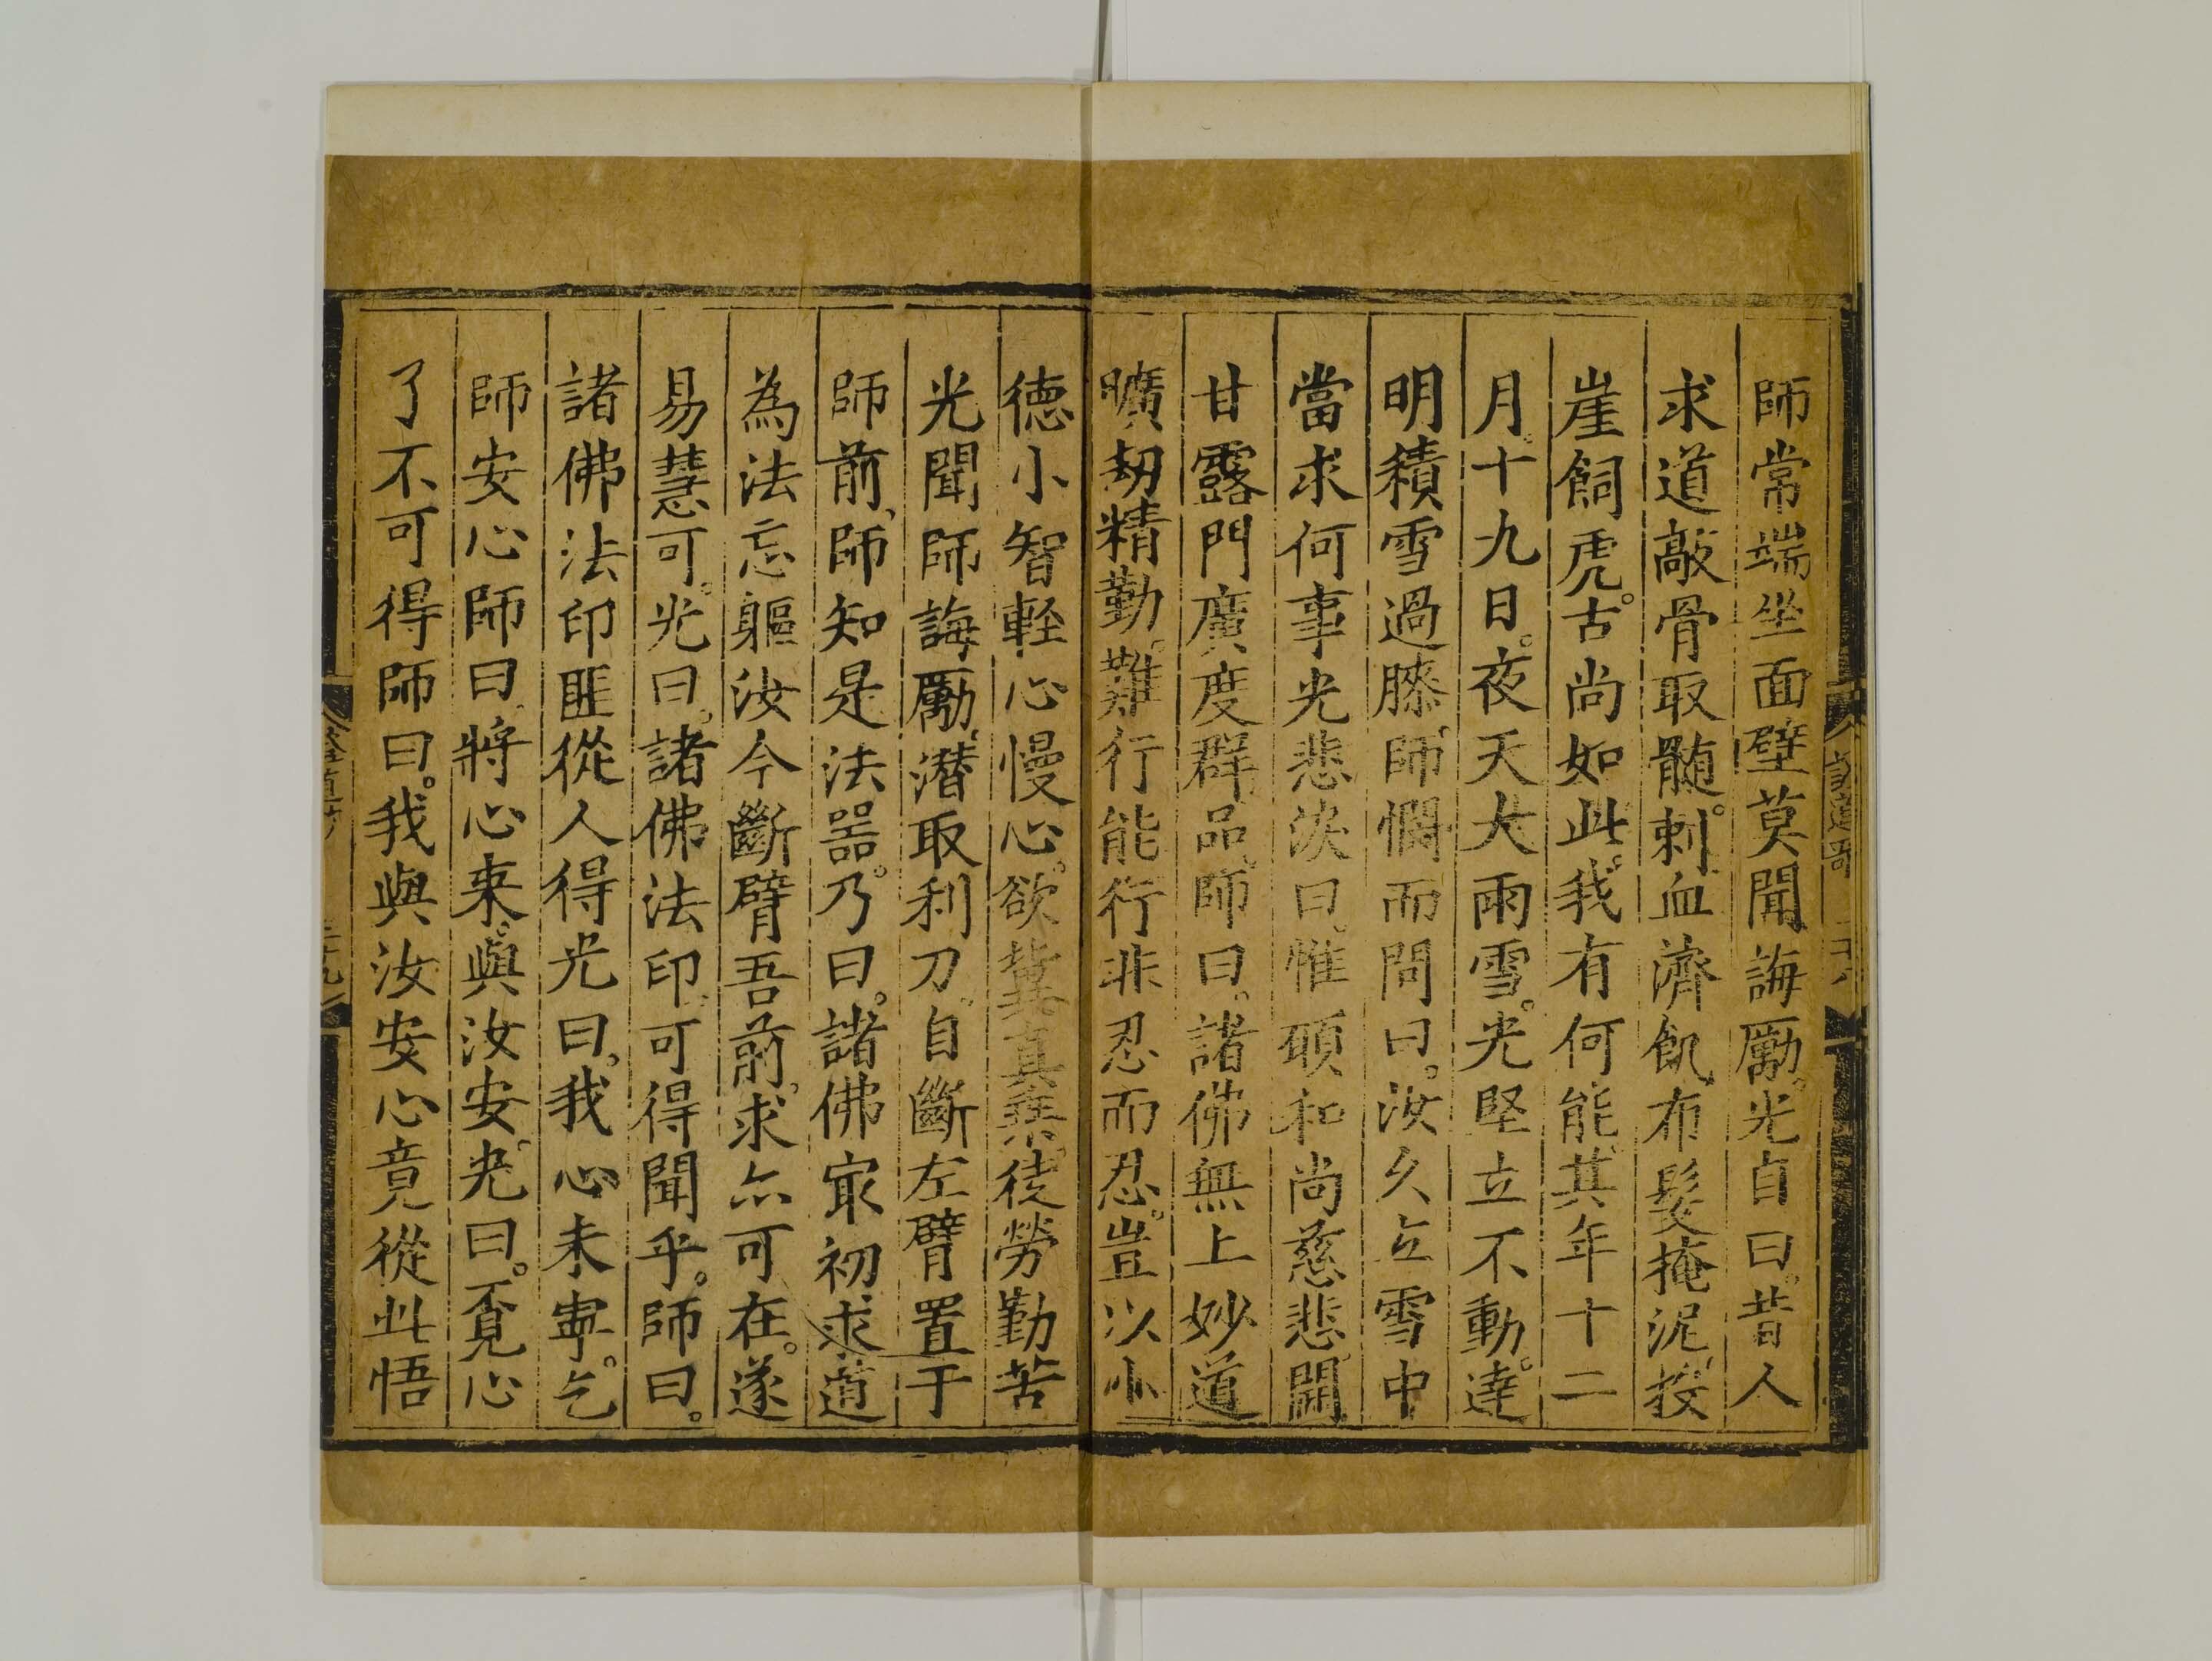 師常端坐面壁莫聞誨勵。光自曰。昔人
求道敲骨取髓。刺血濟飢布髮掩泥投
崖飼虎。古尚如此。我有何能。其年十二
月。十九日。夜天大雨雪。光堅立不動。達
明積雪過膝師憫而問曰。汝久立雪中
當求何事光悲淚曰。惟願和尚慈悲開
甘露門廣度群品師曰。諸佛無上妙道
曠劫精勤。難行能行非忍而忍。豈以小
徳小智輕心慢心。欲冀真乗。徒勞勤苦
光聞師誨勵潜取利刀自斷左臂置于
師前師知是法噐。乃曰。諸佛㝡初求道
為法忘軀汝今斷臂吾前。求亦可在。遂
易慧可。光曰。諸佛法印可得聞乎。師曰。
諸佛法印匪從人得光曰。我心未寧。乞
師安心師曰將心来。與汝安。光曰。覔心
了不可得師曰。我與汝安心竟從此悟